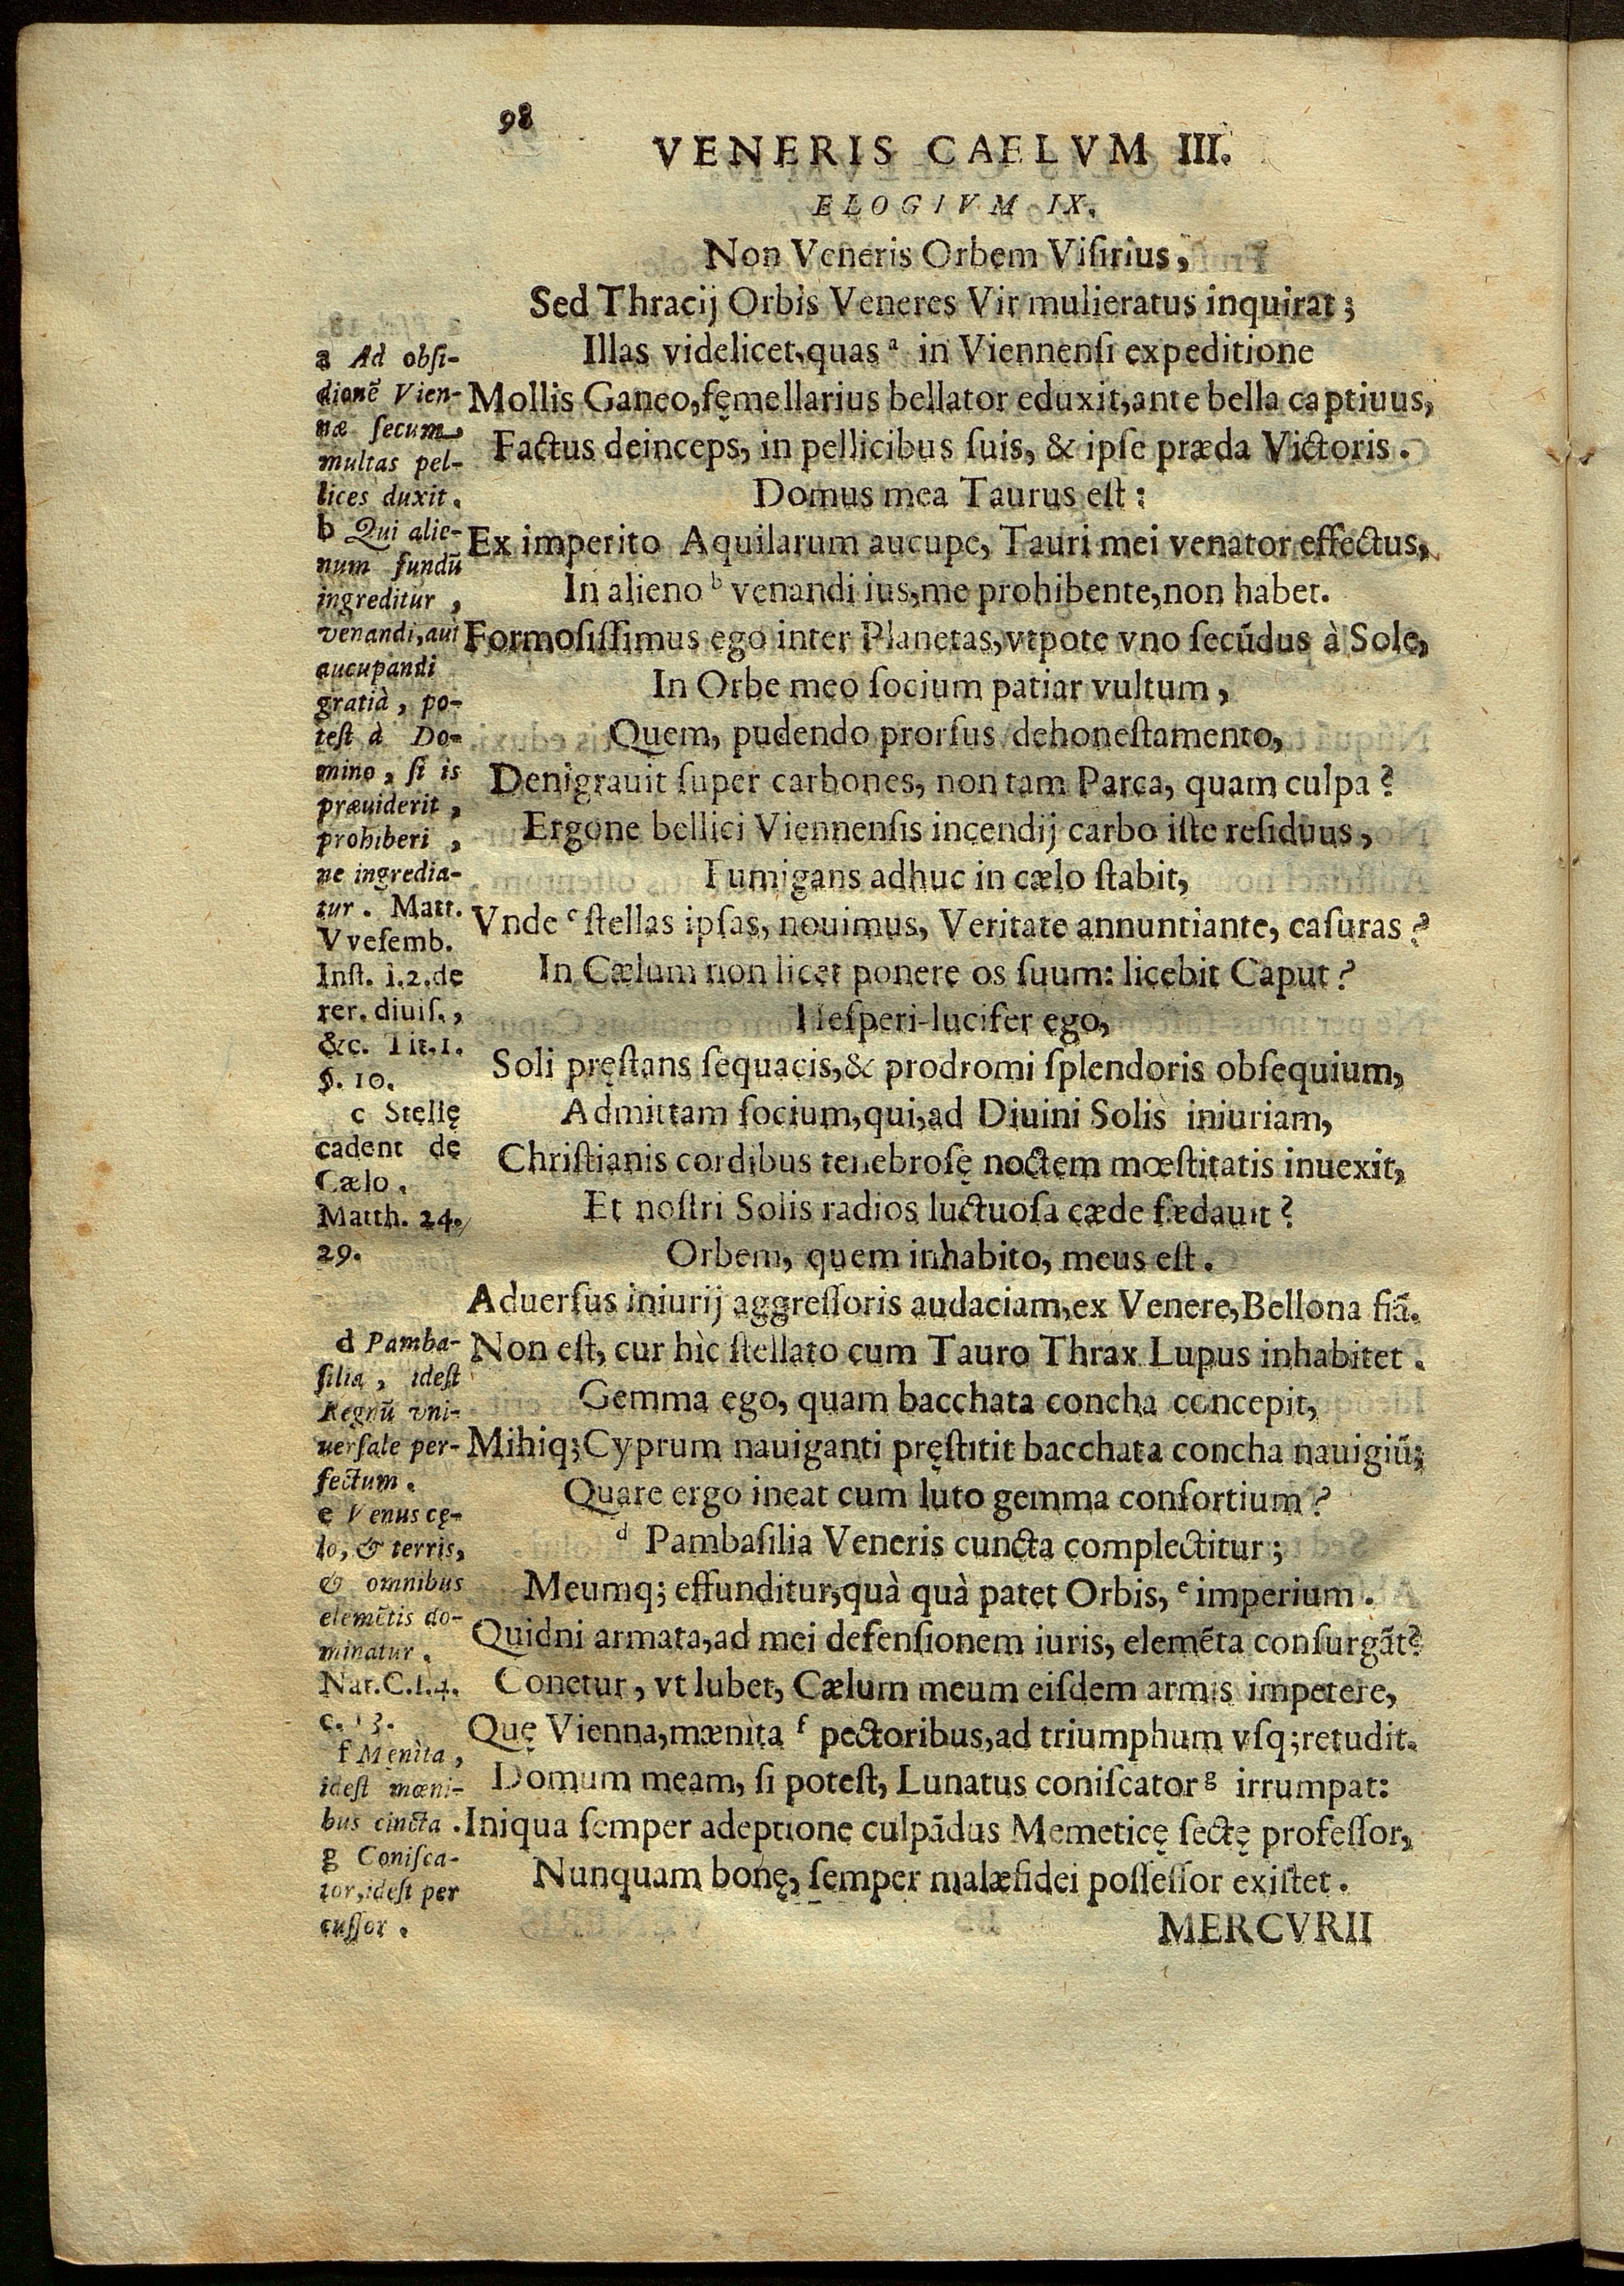 98
VENERIS CAELVM III.
ELOGIVM IX.
Non Veneris Orbem Viſirius,
Sed Thracij Orbis Veneres Vir mulieratus inquirat;
Illas videlicet, quas ᵃ in Viennenſi expeditione
Mollis Ganeo, fęmellarius bellator eduxit, ante bella captiuus,
Factus deinceps, in pellicibus ſuis, & ipſe præda Victoris.
Domus mea Taurus eſt:
Ex imperito Aquilarum aucupe, Tauri mei venator effectus,
In alieno ᵇ venandi ius, me prohibente, non habet.
Formoſiſſimus ego inter Planetas, vtpote vno ſecūdus à Sole,
In Orbe meo ſocium patiar vultum,
Quem, pudendo prorſus dehoneſtamento,
Denigrauit ſuper carbones, non tam Parca, quam culpa?
Ergone bellici Viennenſis incendij carbo iſte reſiduus,
Fumigans adhuc in cælo ſtabit,
Vnde ᶜ ſtellas ipſas, nouimus, Veritate annuntiante, caſuras?
In Cælum non licet ponere os ſuum: licebit Caput?
Heſperi-lucifer ego,
Soli pręſtans ſequacis, & prodromi ſplendoris obſequium,
Admittam ſocium, qui, ad Diuini Solis iniuriam,
Chriſtianis cordibus tenebroſę noctem mœſtitatis inuexit,
Et noſtri Solis radios luctuoſa cæde fædauit?
Orbem, quem inhabito, meus eſt.
Aduerſus iniurij aggreſſoris audaciam, ex Venere, Bellona fiā.
Non eſt, cur hìc ſtellato cum Tauro Thrax Lupus inhabitet.
Gemma ego, quam bacchata concha concepit,
Mihiq; Cyprum nauiganti pręſtitit bacchata concha nauigiū;
Quare ergo ineat cum luto gemma conſortium?
ᵈ Pambaſilia Veneris cuncta complectitur;
Meumq; effunditur, quà quà patet Orbis, ᵉ imperium.
Quidni armata, ad mei defenſionem iuris, elemēta conſurgāt?
Conetur, vt lubet, Cælum meum eiſdem armis impetere,
Quę Vienna, mænita ᶠ pectoribus, ad triumphum vſq; retudit.
Domum meam, ſi poteſt, Lunatus coniſcator ᵍ irrumpat:
Iniqua ſemper adeptione culpādus Memeticę ſectę profeſſor,
Nunquam bonę, ſemper malæfidei poſſeſſor exiſtet.
MERCVRII
a Ad obſi-
dionē Vien-
næ ſecum
multas pel-
lices duxit.
b Qui alie-
num fundū
ingreditur,
venandi, aut
aucupandi
gratià, po-
teſt à Do-
mino, ſi is
præuiderit,
prohiberi,
ne ingredia-
tur. Matt.
Vveſemb.
Inſt. l.2. de
rer. diuiſ.,
&c. Tit.1.
§. 10.
c Stellę
cadent de
Cælo.
Matth. 24.
29.
d Pamba-
ſilia, ideſt
Regnū vni-
uerſale per-
fectum.
e Venus cę-
lo, & terris,
& omnibus
elemētis do-
minatur.
Nat.C.l.4.
c. 13.
f Męnita,
ideſt mœni-
bus cincta.
g Coniſca-
tor, ideſt per
cuſſor.